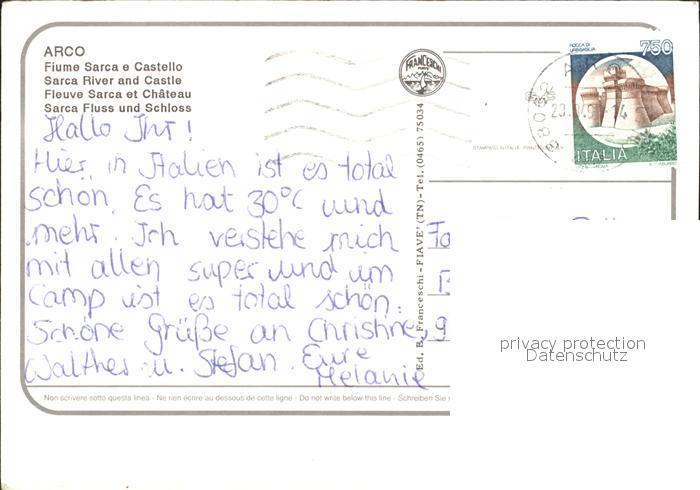 ARCO
Fiume Sarca e Castello
Sarca River and Castle
Fleuve Sarca et Château
Sarca Fluss und Schloss
Hallo Ihr!
Hier in Italien ist es total
schön. Es hat 30°C und
mehr. Ich verstehe mich
mit allen super und im
Camp ist es total schön.
Schöne Grüße an Christine,
Walther u. Stefan. Eure
Melanie
Non scrivere sotto questa linea - Ne rien écrire au dessous de cette ligne - Do not write below this line - Schreiben Sie
FRANCESCHI
FIAVE'
Ed. B. Franceschi - FIAVE' (TN) - Tel. (0465) 75034
ROCCA DI
URBISAGLIA
750
ITALIA
privacy protection
Datenschutz